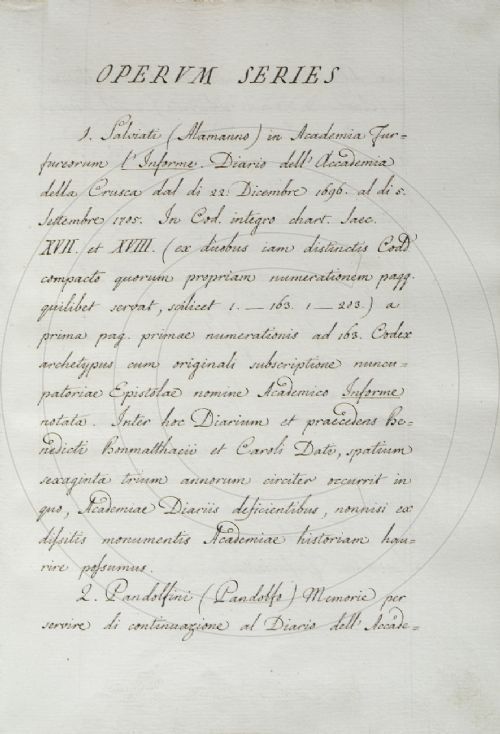 OPERVM SERIES
1. Salviati (Alamanno) in Academia Fur=
fureorum l'Informe. Diario dell'Accademia
della Crusca dal di 22. Dicembre 1696. al di 5.
Settembre 1705. In Cod. integro chart. Saec.
XVII. et XVIII. (ex duobus iam distinctis Codd
compacto quorum propriam numerationem pagg.
quilibet servat, scilicet 1. — 163. 1 — 203.) a
prima pag. primae numerationis ad 163. Codex
archetypus cum originali subscriptione nuncu=
patoriae Epistolae nomine Academico Informe
notata. Inter hoc Diarium et praecedens Be=
nedicti Bonmatthaeii et Caroli Dati, spatium
sexaginta trium annorum circiter occurrit in
quo, Academiae Diariis deficientibus, nonnisi ex
disitis monumentis Academiae historiam hau=
rire possumus.
2. Pandolfini (Pandolfo) Memorie per
servire di continuazione al Diario dell'Accade=